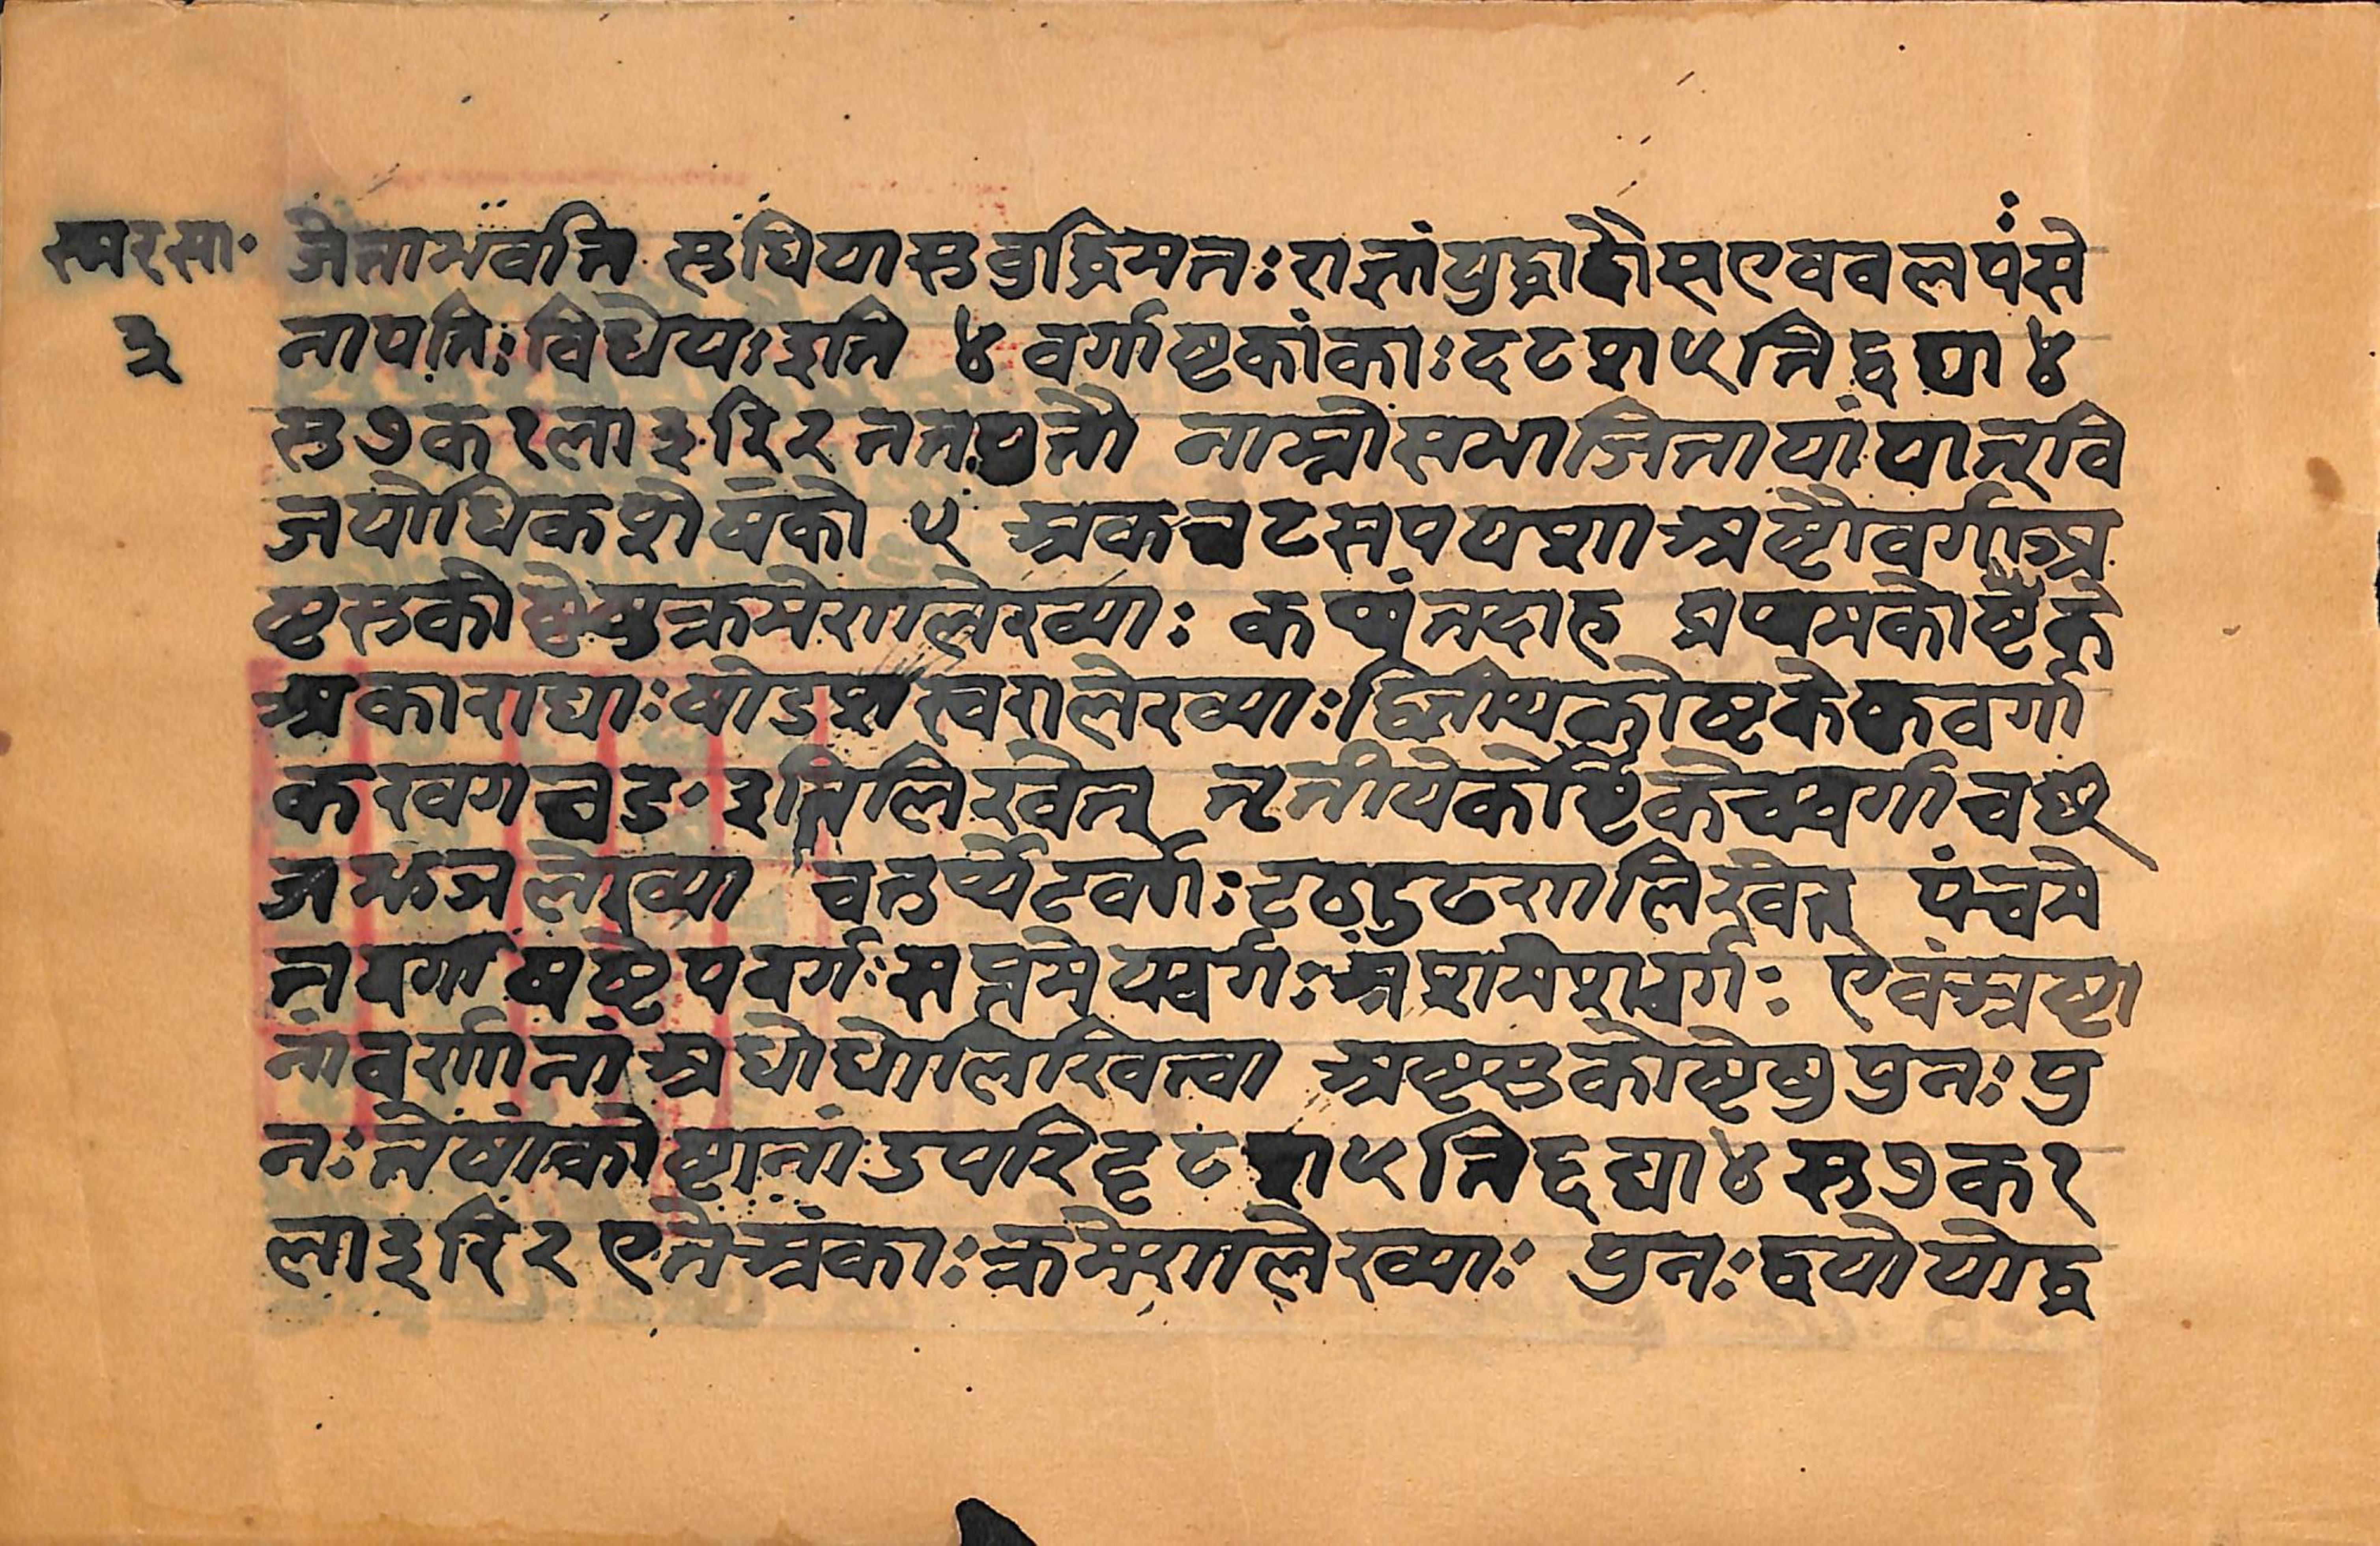 स्मरसा॰
३
जेताभवति सुधियासुवुद्धिमतः राज्ञांयुद्धादौसएववलपंसे
नापतिः विधेयः इति ४ वर्गाष्टकांकाः दटश ५ ति द्व घा ४
सु ७ क १ ला ३ रि २ ततपुतो नाम्नोसभाजितायां यात्र्वि
जयोधिकशेषको ५ अकचटसपयशा अष्टौवर्गाअ
ष्टसुकोष्ठेषुक्रमेणालेख्याः कथंतदाह प्रथमकोष्टके
अकाराद्याः षोडशस्वरालेख्याः द्वितीयकोष्टकेकवर्गा
कखगघङ॰ इतिलिखेत् तृतीयेकोष्टकेचवर्गाचछ
जझञलेख्या चतुर्थेटवर्गः टठडुढणालिखेत् पंचमे
तवर्गा षष्टेपवर्गः सप्तमेयवर्गः अष्टमेशवर्गः एवंअष्टा
नांवर्णानां अधोधोलिखित्वा अष्टसुकोष्टेषुपुनः पु
नः तेषांकोष्टानां उपरिदृ ट श ५ ति द्द घा ४ सु ७ क १
ला ३ रि २ एतेअंकाः क्रमेणालेख्याः पुनः द्वयोयोद्व